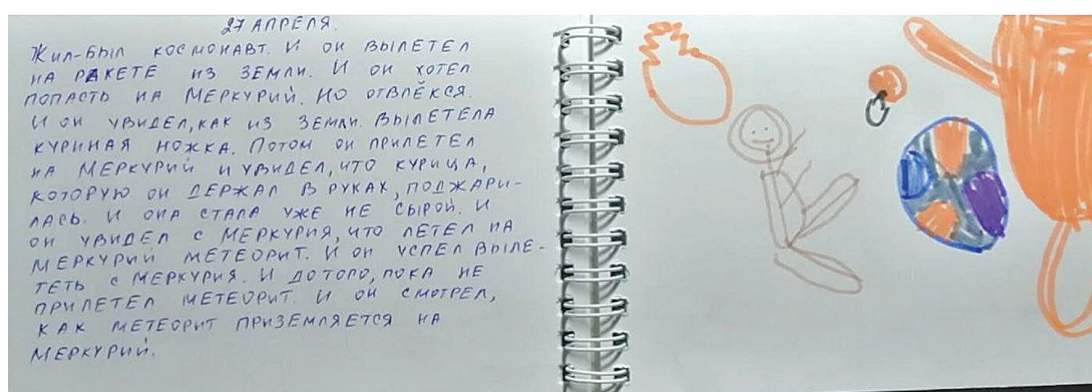 27 АПРЕЛЯ.
ЖИЛ-БЫЛ КОСМОНАВТ. И ОН ВЫЛЕТЕЛ
НА РАКЕТЕ ИЗ ЗЕМЛИ. И ОН ХОТЕЛ
ПОПАСТЬ НА МЕРКУРИЙ. НО ОТВЛЁКСЯ.
И ОН УВИДЕЛ, КАК ИЗ ЗЕМЛИ. ВЫЛЕТЕЛА
КУРИНАЯ НОЖКА. ПОТОМ ОН ПРИЛЕТЕЛ
НА МЕРКУРИЙ И УВИДЕЛ, ЧТО КУРИЦА,
КОТОРУЮ ОН ДЕРЖАЛ В РУКАХ, ПОДЖАРИ-
ЛАСЬ. И ОНА СТАЛА УЖЕ НЕ СЫРОЙ. И
ОН УВИДЕЛ С МЕРКУРИЯ, ЧТО ЛЕТЕЛ НА
МЕРКУРИЙ МЕТЕОРИТ. И ОН УСПЕЛ ВЫЛЕ-
ТЕТЬ С МЕРКУРИЯ. И ДО ТОГО, ПОКА НЕ
ПРИЛЕТЕЛ МЕТЕОРИТ. И ОН СМОТРЕЛ,
КАК МЕТЕОРИТ ПРИЗЕМЛЯЕТСЯ НА
МЕРКУРИЙ.